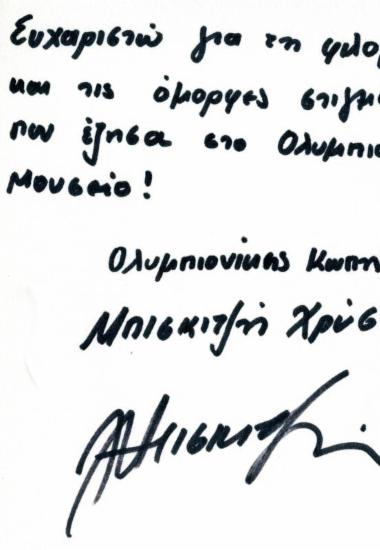 Ευχαριστώ για τη φιλο
και τις όμορφες στιγμ
που έζησα στο Ολυμπιο
Μουσείο!
Ολυμπιονίκης Κωπη
Μπισκιτζή Χρύσ